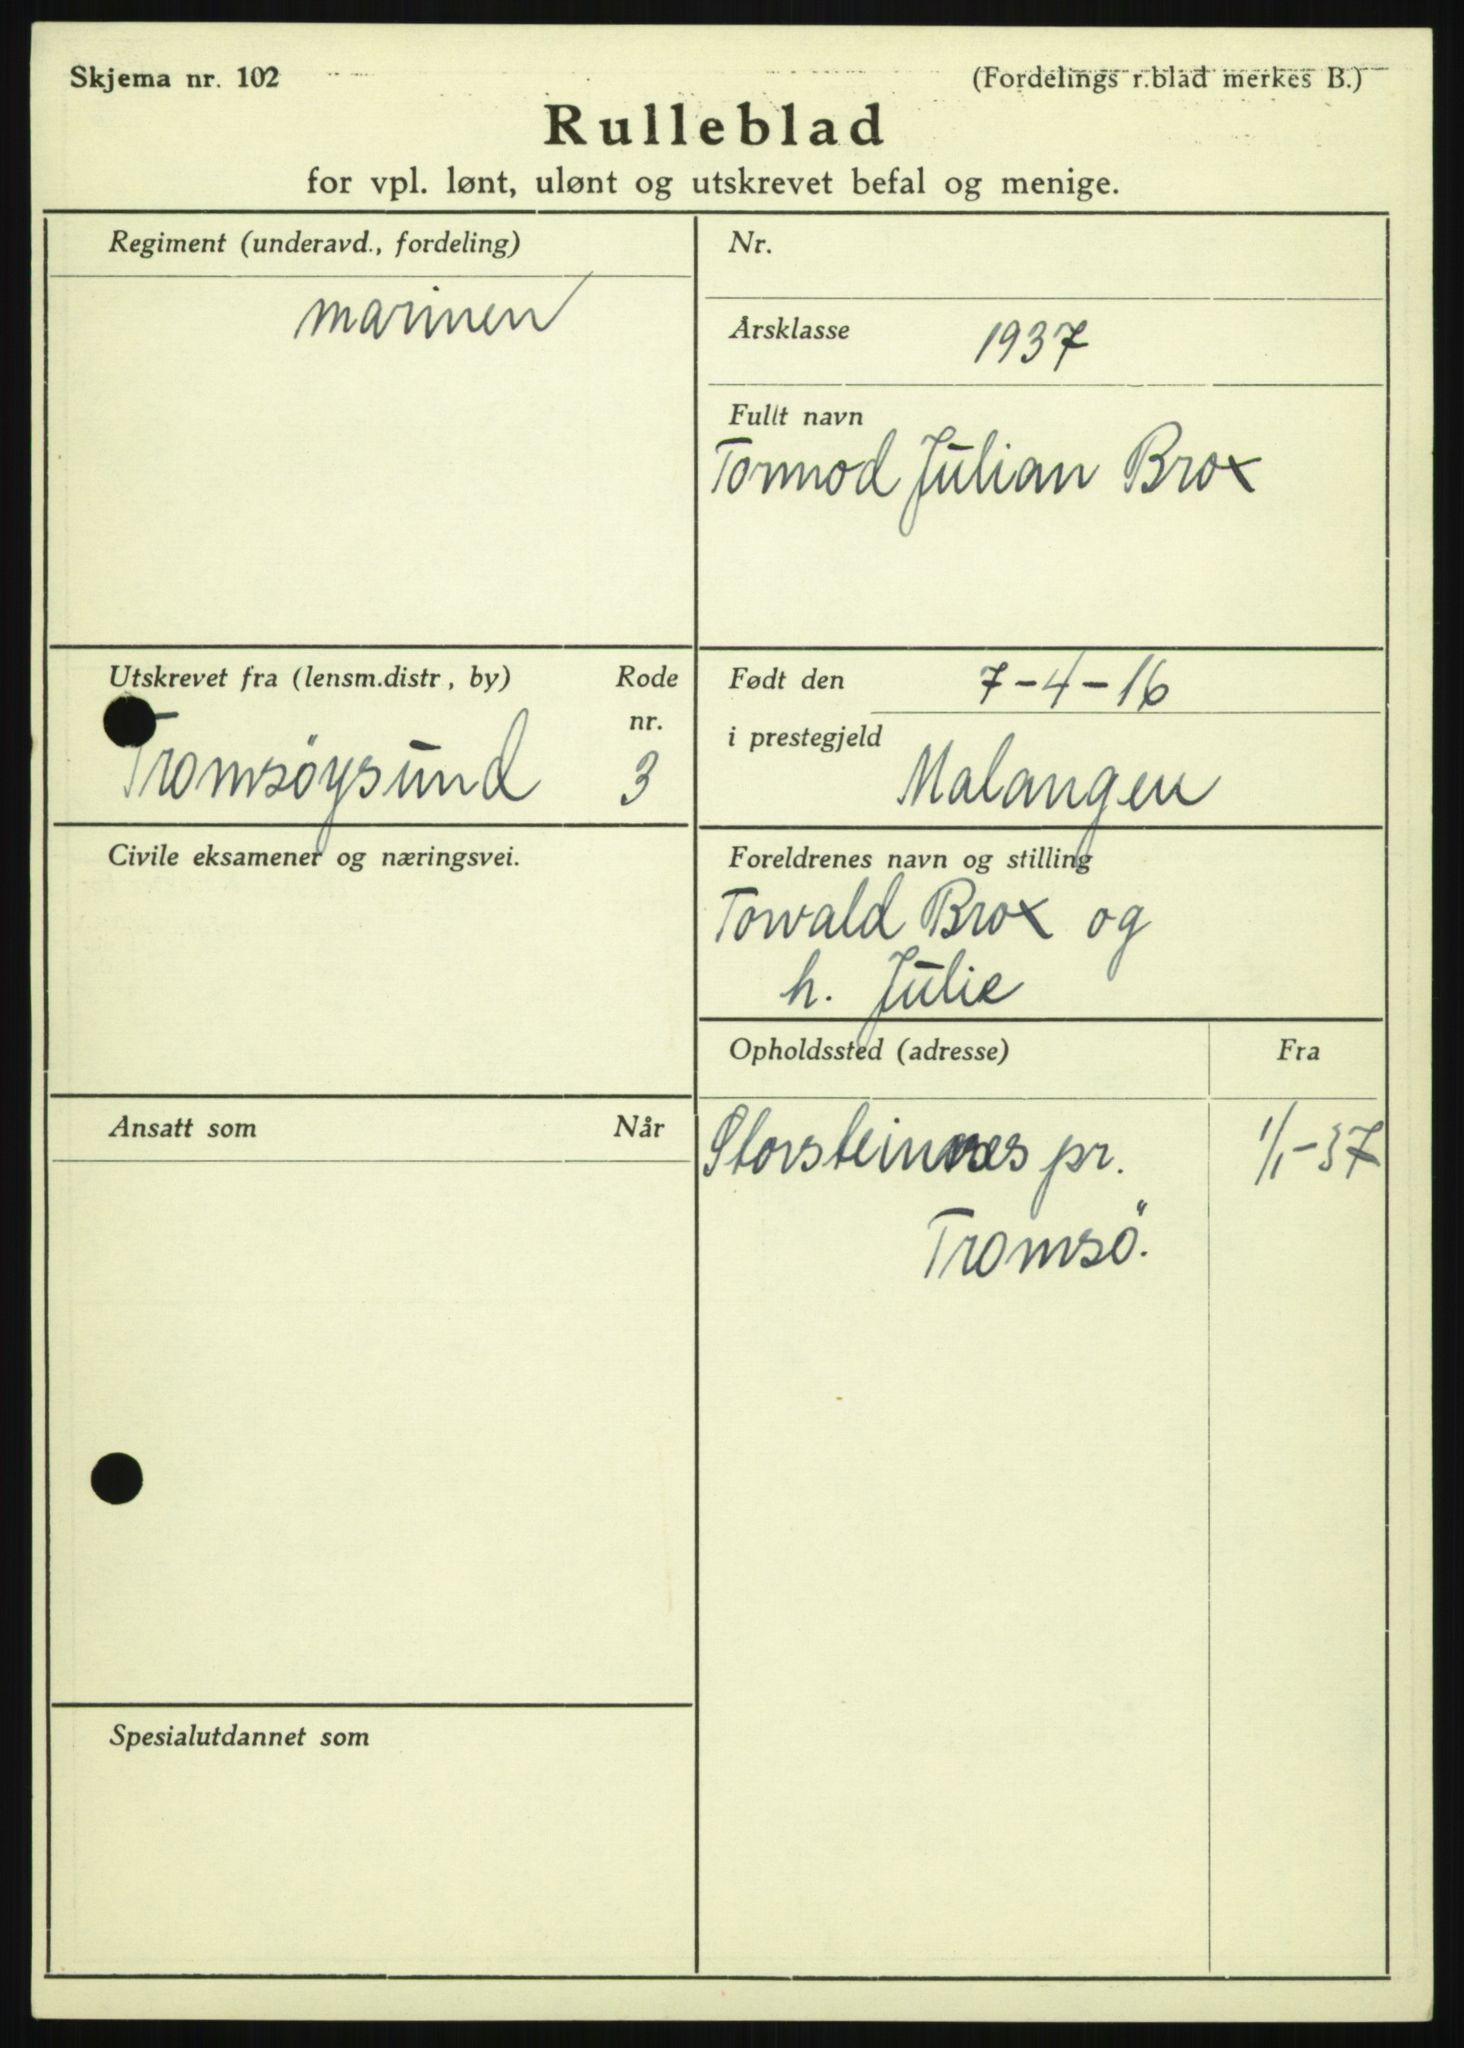 Skjema nr. 102
(Fordelings r.blad merkes B.)
Rulleblad
for vpl. lønt, ulønt og utskrevet befal og menige.
Regiment (underavd., fordeling)
marinen
Nr.
Årsklasse 1937
Fullt navn
Tormod Julian Brox
Utskrevet fra (lensm.distr, by)
Rode nr.
Tromsöysund 3
Født den 7-4-16
i prestegjeld Malangen
Civile eksamener og næringsvei.
Foreldrenes navn og stilling
Torvald Brox og
h. Julie
Opholdssted (adresse) Fra
Ansatt som Når
Storsteinnes pr. 1/1-37
Tromsö.
Spesialutdannet som